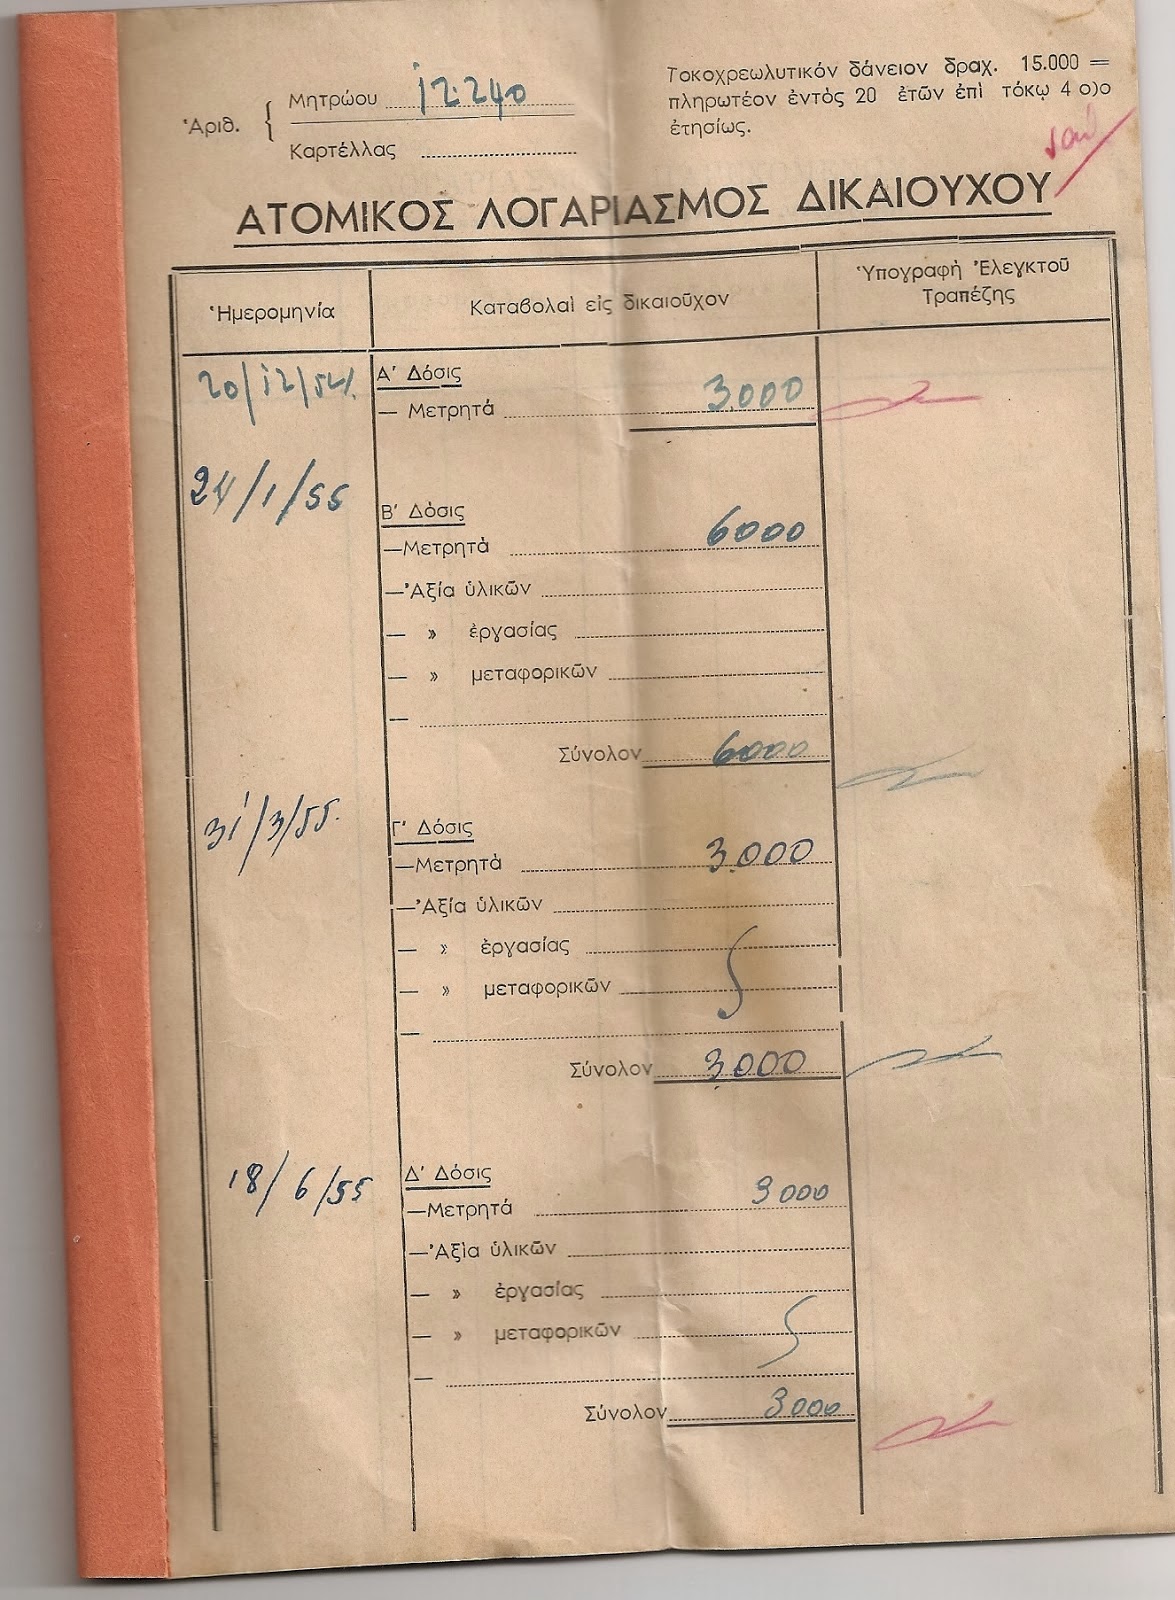 Ἀριθ. { Μητρώου 12.240
Καρτέλλας
Τοκοχρεωλυτικόν δάνειον δραχ. 15.000 =
πληρωτέον ἐντός 20 ἐτῶν ἐπί τόκῳ 4 ο)ο
ἐτησίως.
ΑΤΟΜΙΚΟΣ ΛΟΓΑΡΙΑΣΜΟΣ ΔΙΚΑΙΟΥΧΟΥ
Ἡμερομηνία
Καταβολαὶ εἰς δικαιοῦχον
Ὑπογραφὴ Ἐλεγκτοῦ
Τραπέζης
20/12/54 Α' Δόσις
— Μετρητά 3.000
24/1/55
Β' Δόσις
—Μετρητά 6000
—Ἀξία ὑλικῶν
— » ἐργασίας
— » μεταφορικῶν
—
Σύνολον 6000
31/3/55. Γ' Δόσις
—Μετρητά 3.000
—Ἀξία ὑλικῶν
— » ἐργασίας
— » μεταφορικῶν
—
Σύνολον 3.000
18/6/55 Δ' Δόσις
—Μετρητά 3000
—Ἀξία ὑλικῶν
— » ἐργασίας
— » μεταφορικῶν
—
Σύνολον 3000